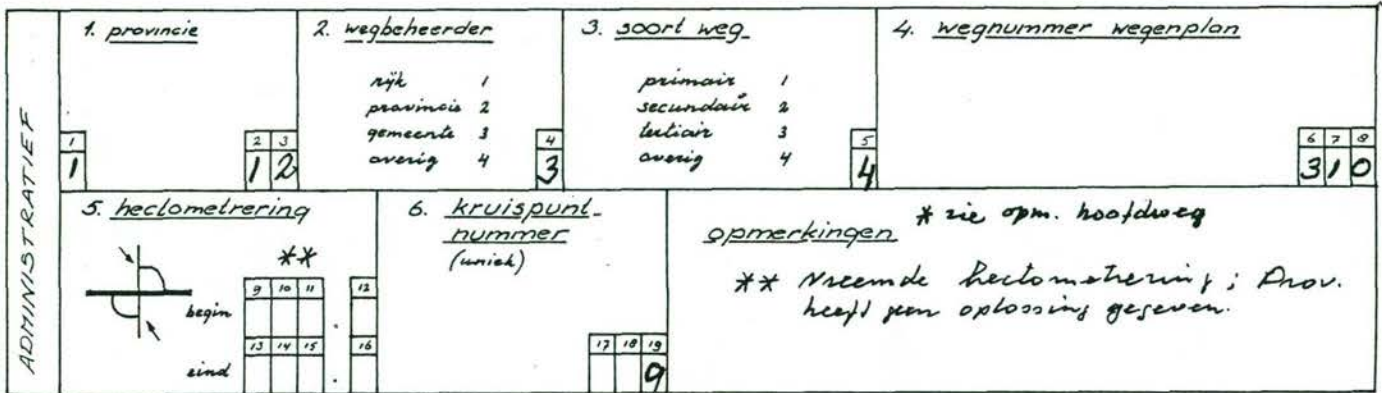 ADMINISTRATIEF
1. provincie
1
1
2 3
1 2
2. wegbeheerder
rijk 1
provincie 2
gemeente 3
overig 4
4
3
3. soort weg
primair 1
secundair 2
tertiair 3
overig 4
5
4
4. wegnummer wegenplan
6 7 8
3 1 0
5. hectometrering
**
begin
9 10 11 . 12
eind
13 14 15 . 16
6. kruispunt-
nummer
(uniek)
17 18 19
9
opmerkingen
* zie opm. hoofdweg
** Vreemde hectometrering; Prov.
heeft geen oplossing gegeven.